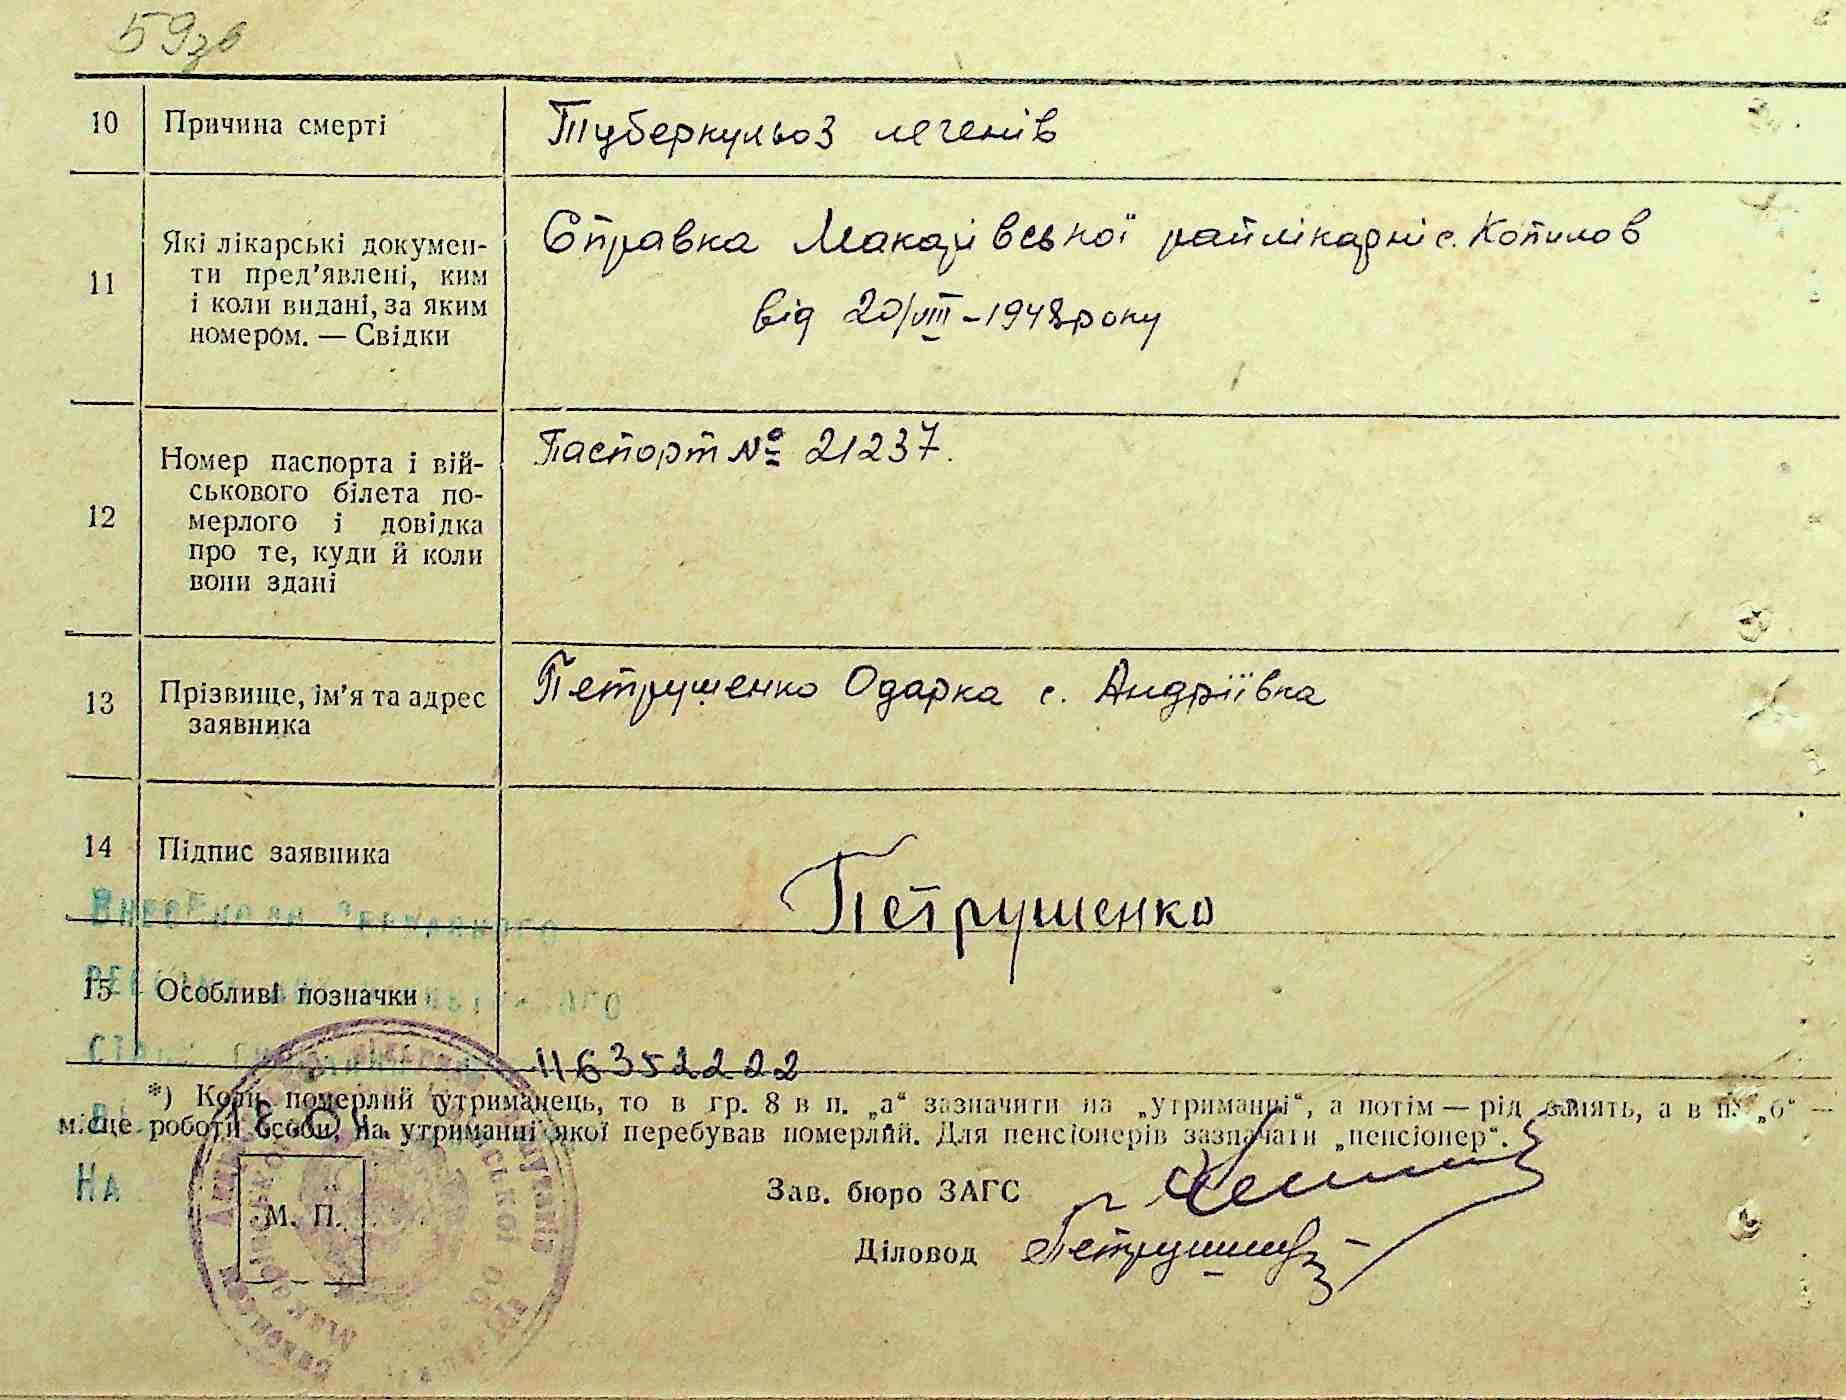 59зв
10 Причина смерті
Туберкульоз легенів
11 Які лікарські докумен-
ти пред’явлені, ким
і коли видані, за яким
номером. — Свідки
Справка Макарівської райлікарні с. Копилов
від 20/VIII-1948 року
12 Номер паспорта і вій-
ськового білета по-
мерлого і довідка
про те, куди й коли
вони здані
Паспорт № 21237.
13 Прізвище, ім’я та адрес
заявника
Петрушенко Одарка с. Андріївка
14 Підпис заявника
Петрушенко
15 Особливі позначки
116352222
*) Коли померлий утриманець, то в гр. 8 в п. „а“ зазначити на „утриманні“, а потім — рід занять, а в п. „б“ —
місце роботи особи, на утриманні якої перебував померлий. Для пенсіонерів зазначати „пенсіонер“.
На
М. П.
Зав. бюро ЗАГС
Діловод